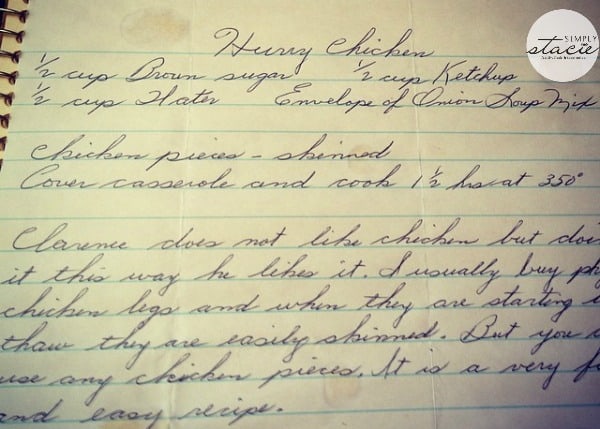 Hurry Chicken
½ cup Brown sugar ½ cup Ketchup
½ cup Water Envelope of Onion Soup Mix
Chicken pieces - skinned
Cover casserole and cook 1½ hrs at 350°
Clarence does not like chicken but doin
it this way he likes it. I usually buy
chicken legs and when they are starting
thaw they are easily skinned. But you
use any chicken pieces. It is a very
and easy recipe.
SIMPLY
stacie